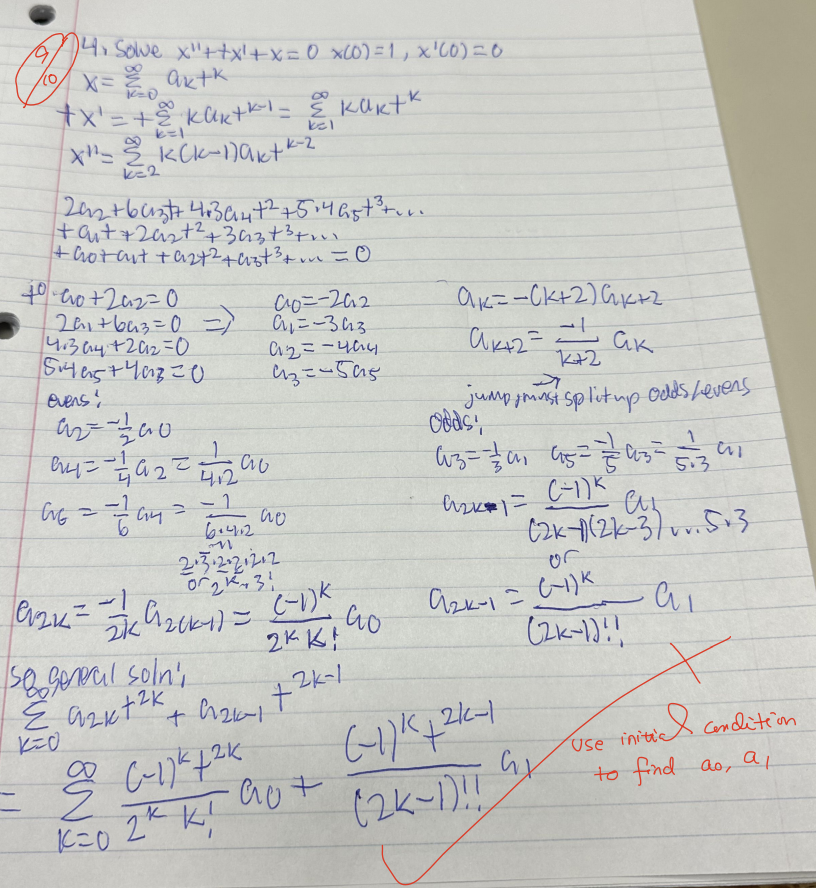 9/10
4. Solve x''+tx'+x=0 x(0)=1, x'(0)=0
x=∑_{k=0}^{∞} a_k t^k
tx'=t∑_{k=1}^{∞} k a_k t^{k-1}=∑_{k=1}^{∞} k a_k t^k
x''=∑_{k=2}^{∞} k(k-1)a_k t^{k-2}
2a_2+6a_3t+4·3a_4t^2+5·4a_5t^3+...
+a_1t+2a_2t^2+3a_3t^3+...
+a_0+a_1t+a_2t^2+a_3t^3+...=0
t^0: a_0+2a_2=0
2a_1+6a_3=0 ⇒
4·3a_4+2a_2=0
5·4a_5+4a_3=0
a_0=-2a_2
a_1=-3a_3
a_2=-4a_4
a_3=-5a_5
a_k=-(k+2)a_{k+2}
a_{k+2}=\frac{-1}{k+2} a_k
jump, must split up odds/evens
evens:
a_2=-\frac{1}{2}a_0
a_4=-\frac{1}{4}a_2=\frac{1}{4·2}a_0
a_6=-\frac{1}{6}a_4=\frac{-1}{6·4·2}a_0
2·3·2·2·2
or 2^k·3!
a_{2k}=\frac{-1}{2k}a_{2(k-1)}=\frac{(-1)^k}{2^k k!}a_0
Odds:
a_3=-\frac{1}{3}a_1 a_5=\frac{-1}{5}a_3=\frac{1}{5·3}a_1
a_{2k-1}=\frac{(-1)^k}{(2k-1)(2k-3)...5·3}a_1
or
a_{2k-1}=\frac{(-1)^k}{(2k-1)!!}a_1
so general soln:
∑_{k=0}^{∞} a_{2k}t^{2k}+a_{2k-1}t^{2k-1}
=∑_{k=0}^{∞} \frac{(-1)^k t^{2k}}{2^k k!}a_0+\frac{(-1)^k t^{2k-1}}{(2k-1)!!}a_1
use initial condition
to find a_0, a_1